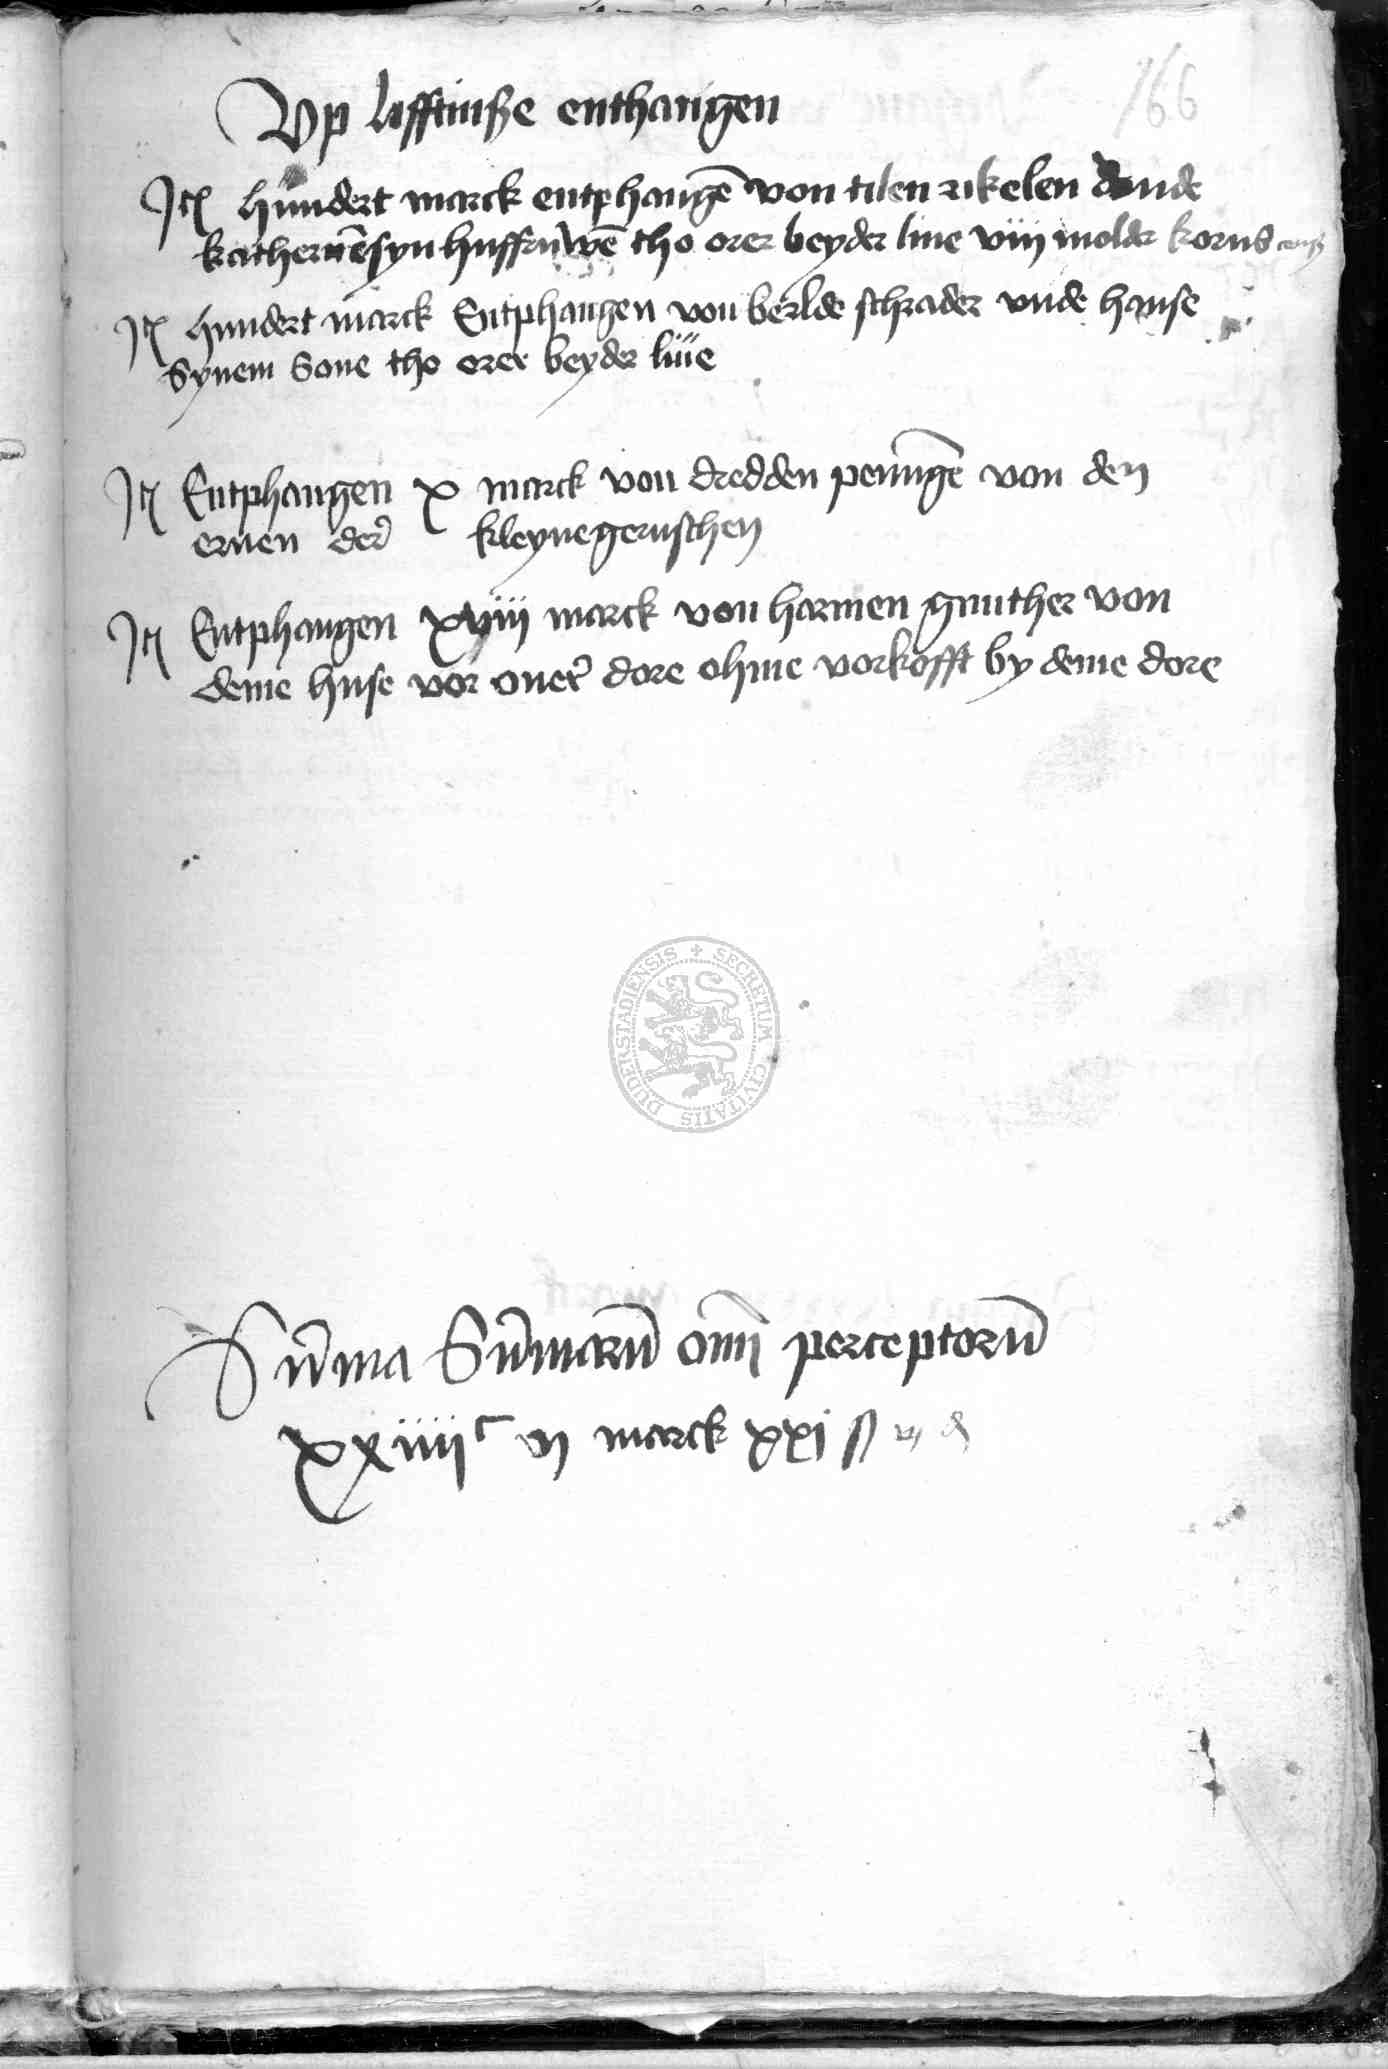 166
Up lifftinsze enthangen
Itē hundert marck entphangē von tilen rikelen vnde
katherinē syn husfruwē tho orer beyder liue viij molder korns
Itē hundert marck Entphangen von berlde schrader vnde hanse
Synem Sone tho orer beyder liue
Itē Entphangen x marck von dredden penīgē von den
eruen der kleynegernschen
Itē Entphangen xviij marck von harmen gunther von
deme huse vor ouer dore ohme vorkofft by deme dore
Sūma Sūmarū oīm perceptorū
xxiiii c vj marck xxi ß vj d
SECRETUM CIVITATIS DUDERSTADIENSIS